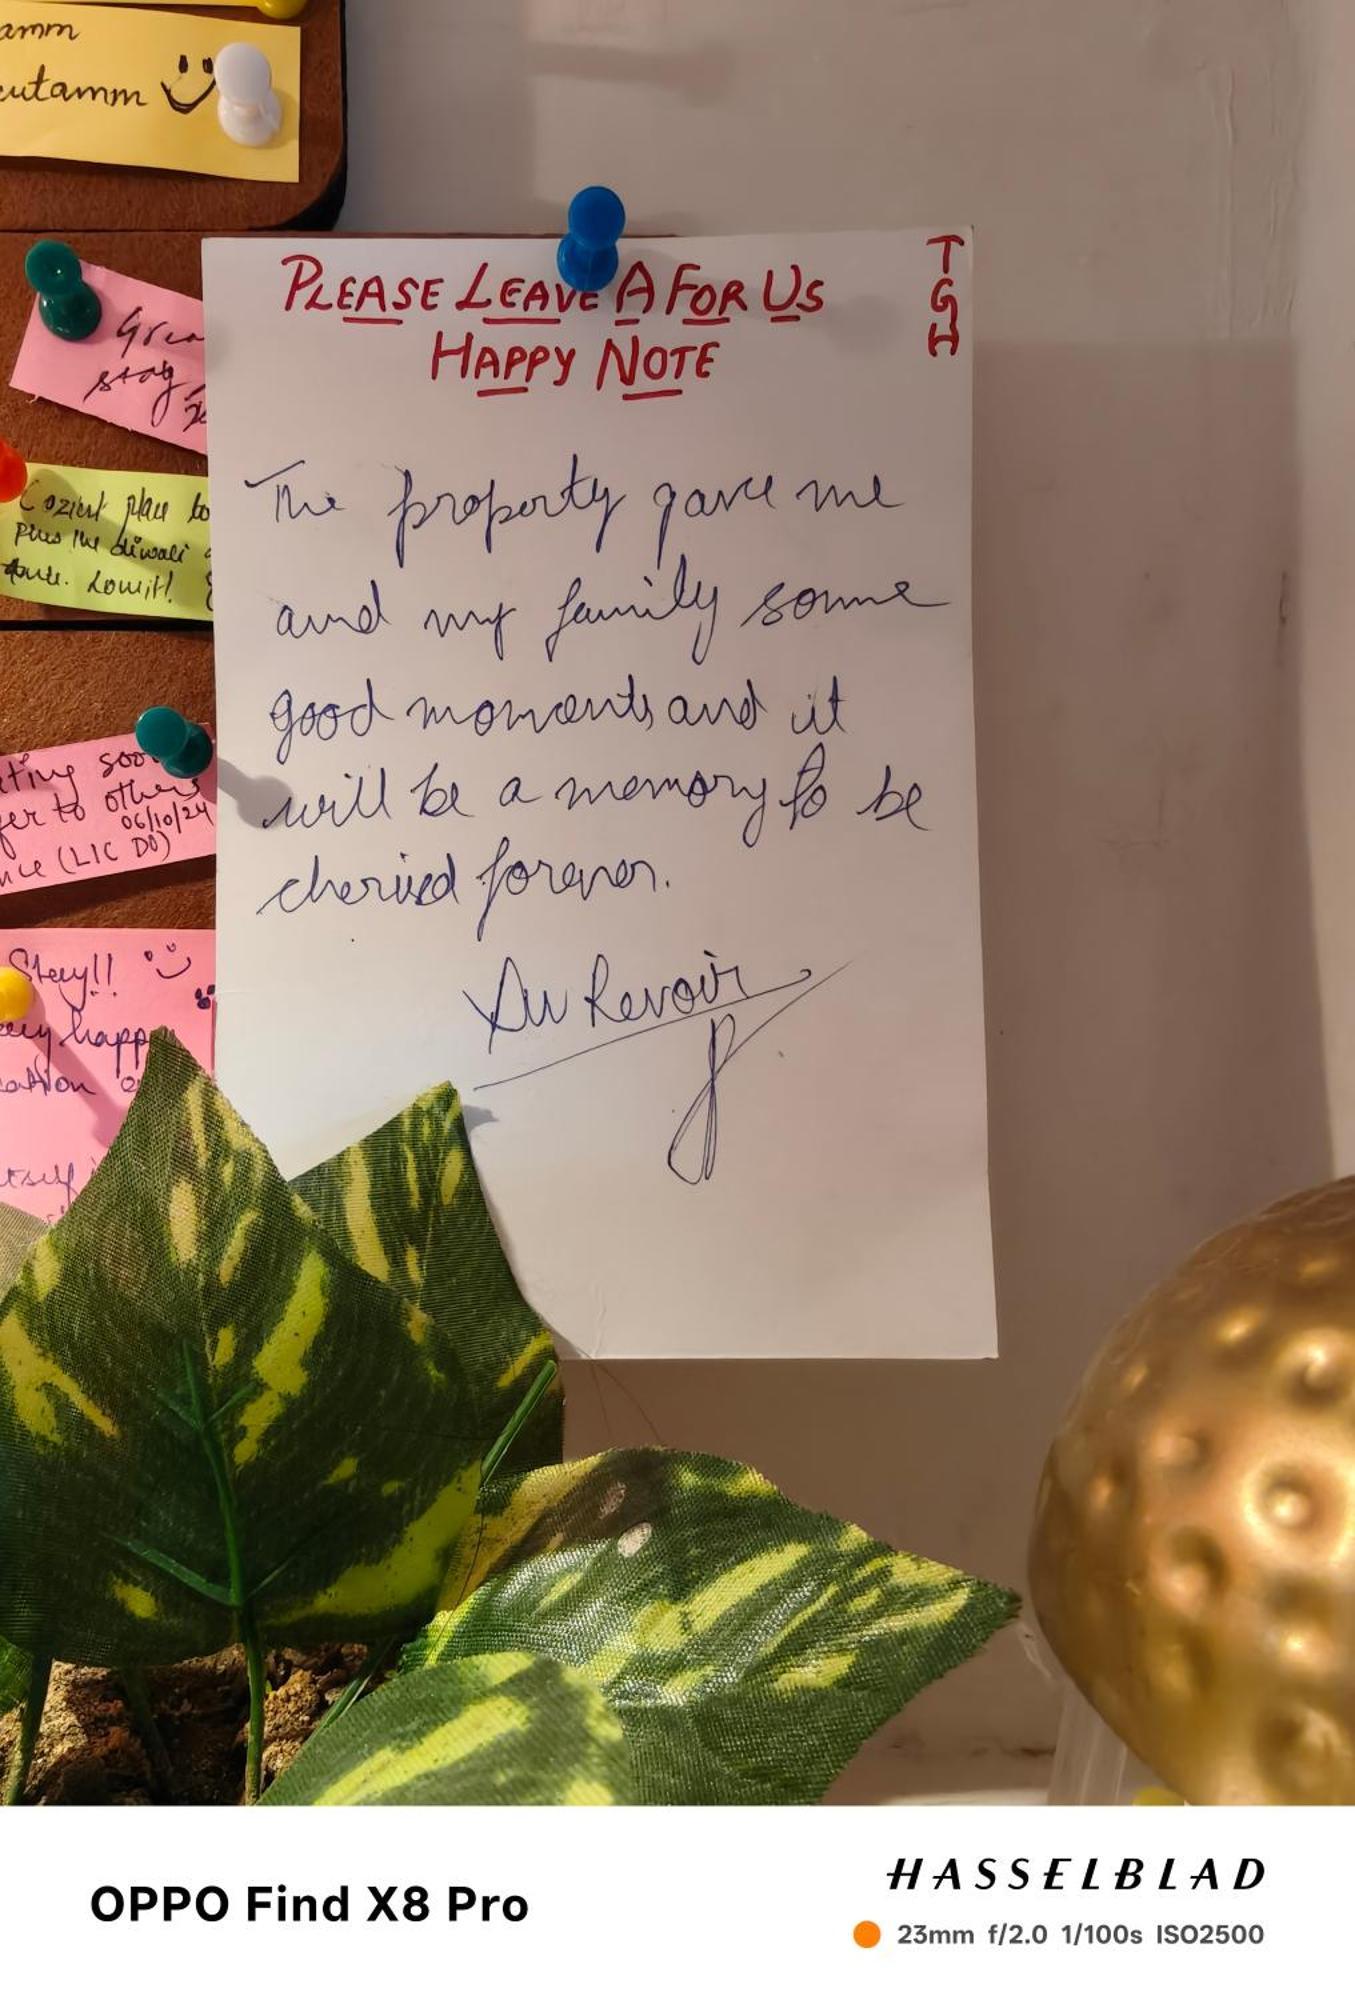 amm
utamm
PLEASE LEAVE A FOR US
HAPPY NOTE
TGH
The property gave me
and my family some
good moments and it
will be a memory to be
cherised forever.
Au Revoir
Grea
stay
Coziest place to
pius the diwali
Lovit!
ting soo
er to others
06/10/24
nce (LIC DO)
Stay!!
happy
ation
tself
OPPO Find X8 Pro
HASSELBLAD
23mm f/2.0 1/100s ISO2500